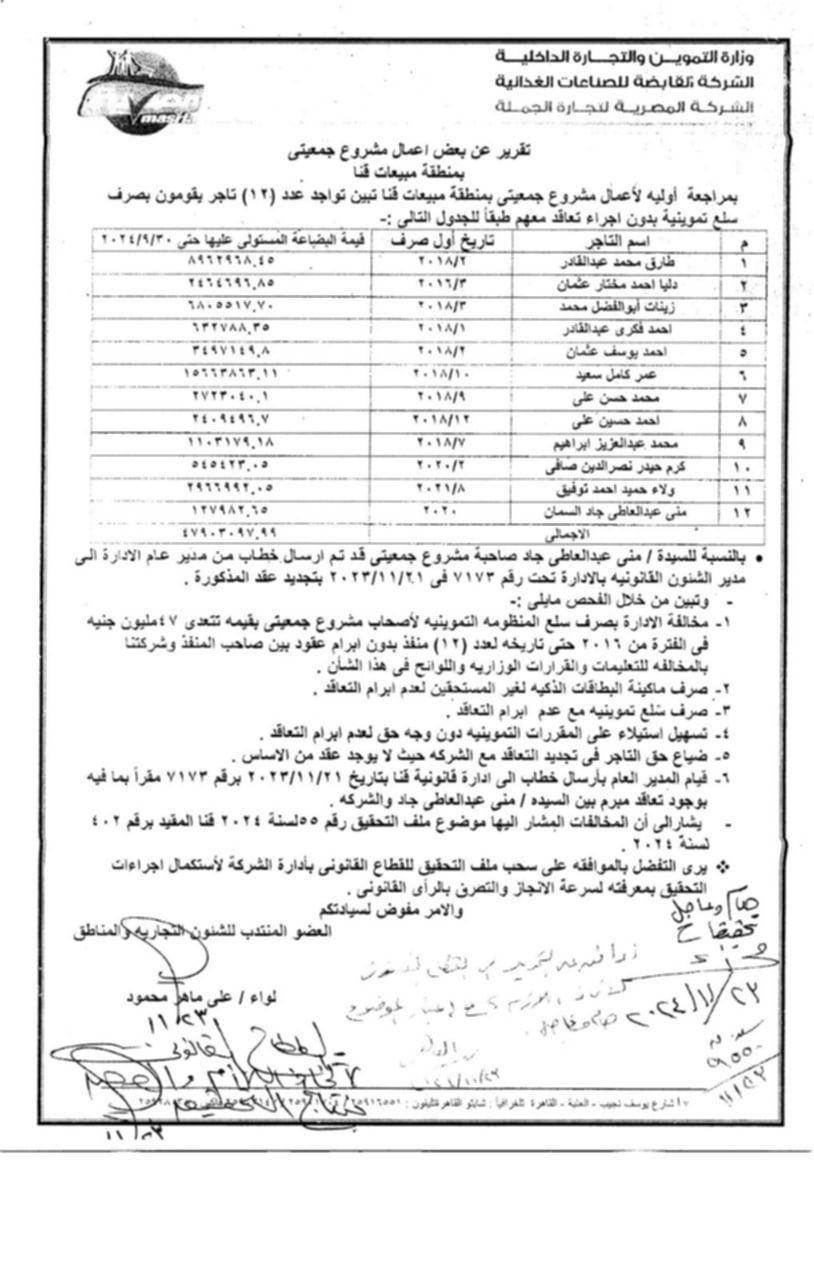 وزارة التموين والتجارة الداخلية
الشركة القابضة للصناعات الغذائية
الشركة المصرية لتجارة الجملة
masr
تقرير عن بعض اعمال مشروع جمعيتى
بمنطقة مبيعات قنا
بمراجعة أوليه لأعمال مشروع جمعيتى بمنطقة مبيعات قنا تبين تواجد عدد (١٢) تاجر يقومون بصرف
سلع تموينية بدون اجراء تعاقد معهم طبقاً للجدول التالى :-
م اسم التاجر تاريخ أول صرف قيمة البضاعة المستولى عليها حتى ٢٠٢٤/٩/٣٠
١ طارق محمد عبدالقادر ٢٠١٨/٢ ٨٩٦٢٩٦٨,٤٥
٢ دليا احمد مختار عثمان ٢٠١٦/٣ ٢٤٦٤٦٩٦,٨٥
٣ زينات أبوالفضل محمد ٢٠١٨/٣ ٦٨٠٥٥١٧,٧٠
٤ احمد فكرى عبدالقادر ٢٠١٨/١ ٦٣٢٧٨٨,٣٥
٥ احمد يوسف عثمان ٢٠١٨/٢ ٣٤٩٧١٤٩,٨
٦ عمر كامل سعيد ٢٠١٨/١٠ ١٥٦٦٣٨٦٣,١١
٧ محمد حسن على ٢٠١٨/٩ ٢٧٢٣٠٤٠,١
٨ احمد حسين على ٢٠١٨/١٢ ٢٤٠٩٤٩٦,٧
٩ محمد عبدالعزيز ابراهيم ٢٠١٨/٧ ١١٠٣١٧٩,١٨
١٠ كرم حيدر نصرالدين صافى ٢٠٢٠/٢ ٥٤٥٤٢٣,٠٥
١١ ولاء حميد احمد توفيق ٢٠٢١/٨ ٢٩٦٦٩٩٢,٠٥
١٢ منى عبدالعاطى جاد السمان ٢٠٢٠ ١٢٧٩٨٢,٦٥
الاجمالى ٤٧٩٠٣٠٩٧,٩٩
• بالنسبة للسيدة / منى عبدالعاطى جاد صاحبة مشروع جمعيتى قد تم ارسال خطاب من مدير عام الادارة الى
مدير الشئون القانونيه بالادارة تحت رقم ٧١٧٣ فى ٢٠٢٣/١١/٢١ بتجديد عقد المذكورة .
- وتبين من خلال الفحص مايلى :-
١- مخالفة الادارة بصرف سلع المنظومه التموينيه لأصحاب مشروع جمعيتى بقيمه تتعدى ٤٧مليون جنيه
فى الفترة من ٢٠١٦ حتى تاريخه لعدد (١٢) منفذ بدون ابرام عقود بين صاحب المنفذ وشركتنا
بالمخالفه للتعليمات والقرارات الوزاريه واللوائح فى هذا الشأن .
٢- صرف ماكينة البطاقات الذكيه لغير المستحقين لعدم ابرام التعاقد .
٣- صرف سلع تموينيه مع عدم ابرام التعاقد .
٤- تسهيل استيلاء على المقررات التموينيه دون وجه حق لعدم ابرام التعاقد .
٥- ضياع حق التاجر فى تجديد التعاقد مع الشركه حيث لا يوجد عقد من الاساس .
٦- قيام المدير العام بأرسال خطاب الى ادارة قانونية قنا بتاريخ ٢٠٢٣/١١/٢١ برقم ٧١٧٣ مقراً بما فيه
بوجود تعاقد مبرم بين السيده / منى عبدالعاطى جاد والشركه .
- يشارالى أن المخالفات المشار اليها موضوع ملف التحقيق رقم ٥٥لسنة ٢٠٢٤ قنا المقيد برقم ٤٠٢
لسنة ٢٠٢٤ .
❖ يرى التفضل بالموافقه على سحب ملف التحقيق للقطاع القانونى بأدارة الشركة لأستكمال اجراءات
التحقيق بمعرفته لسرعة الانجاز والتصرق بالرأى القانونى .
والامر مفوض لسيادتكم
العضو المنتدب للشئون التجاريه والمناطق
هام وعاجل
تحقيقات
لواء / على ماهر محمود
١١/٢٣
٢٠٢٤/١١/٢٣
١١/٢٣
١٧شارع يوسف نجيب - العتبة - القاهرة تلغرافياً : شابتو القاهرة تليفون : ٢٥٩١٦٥٥١